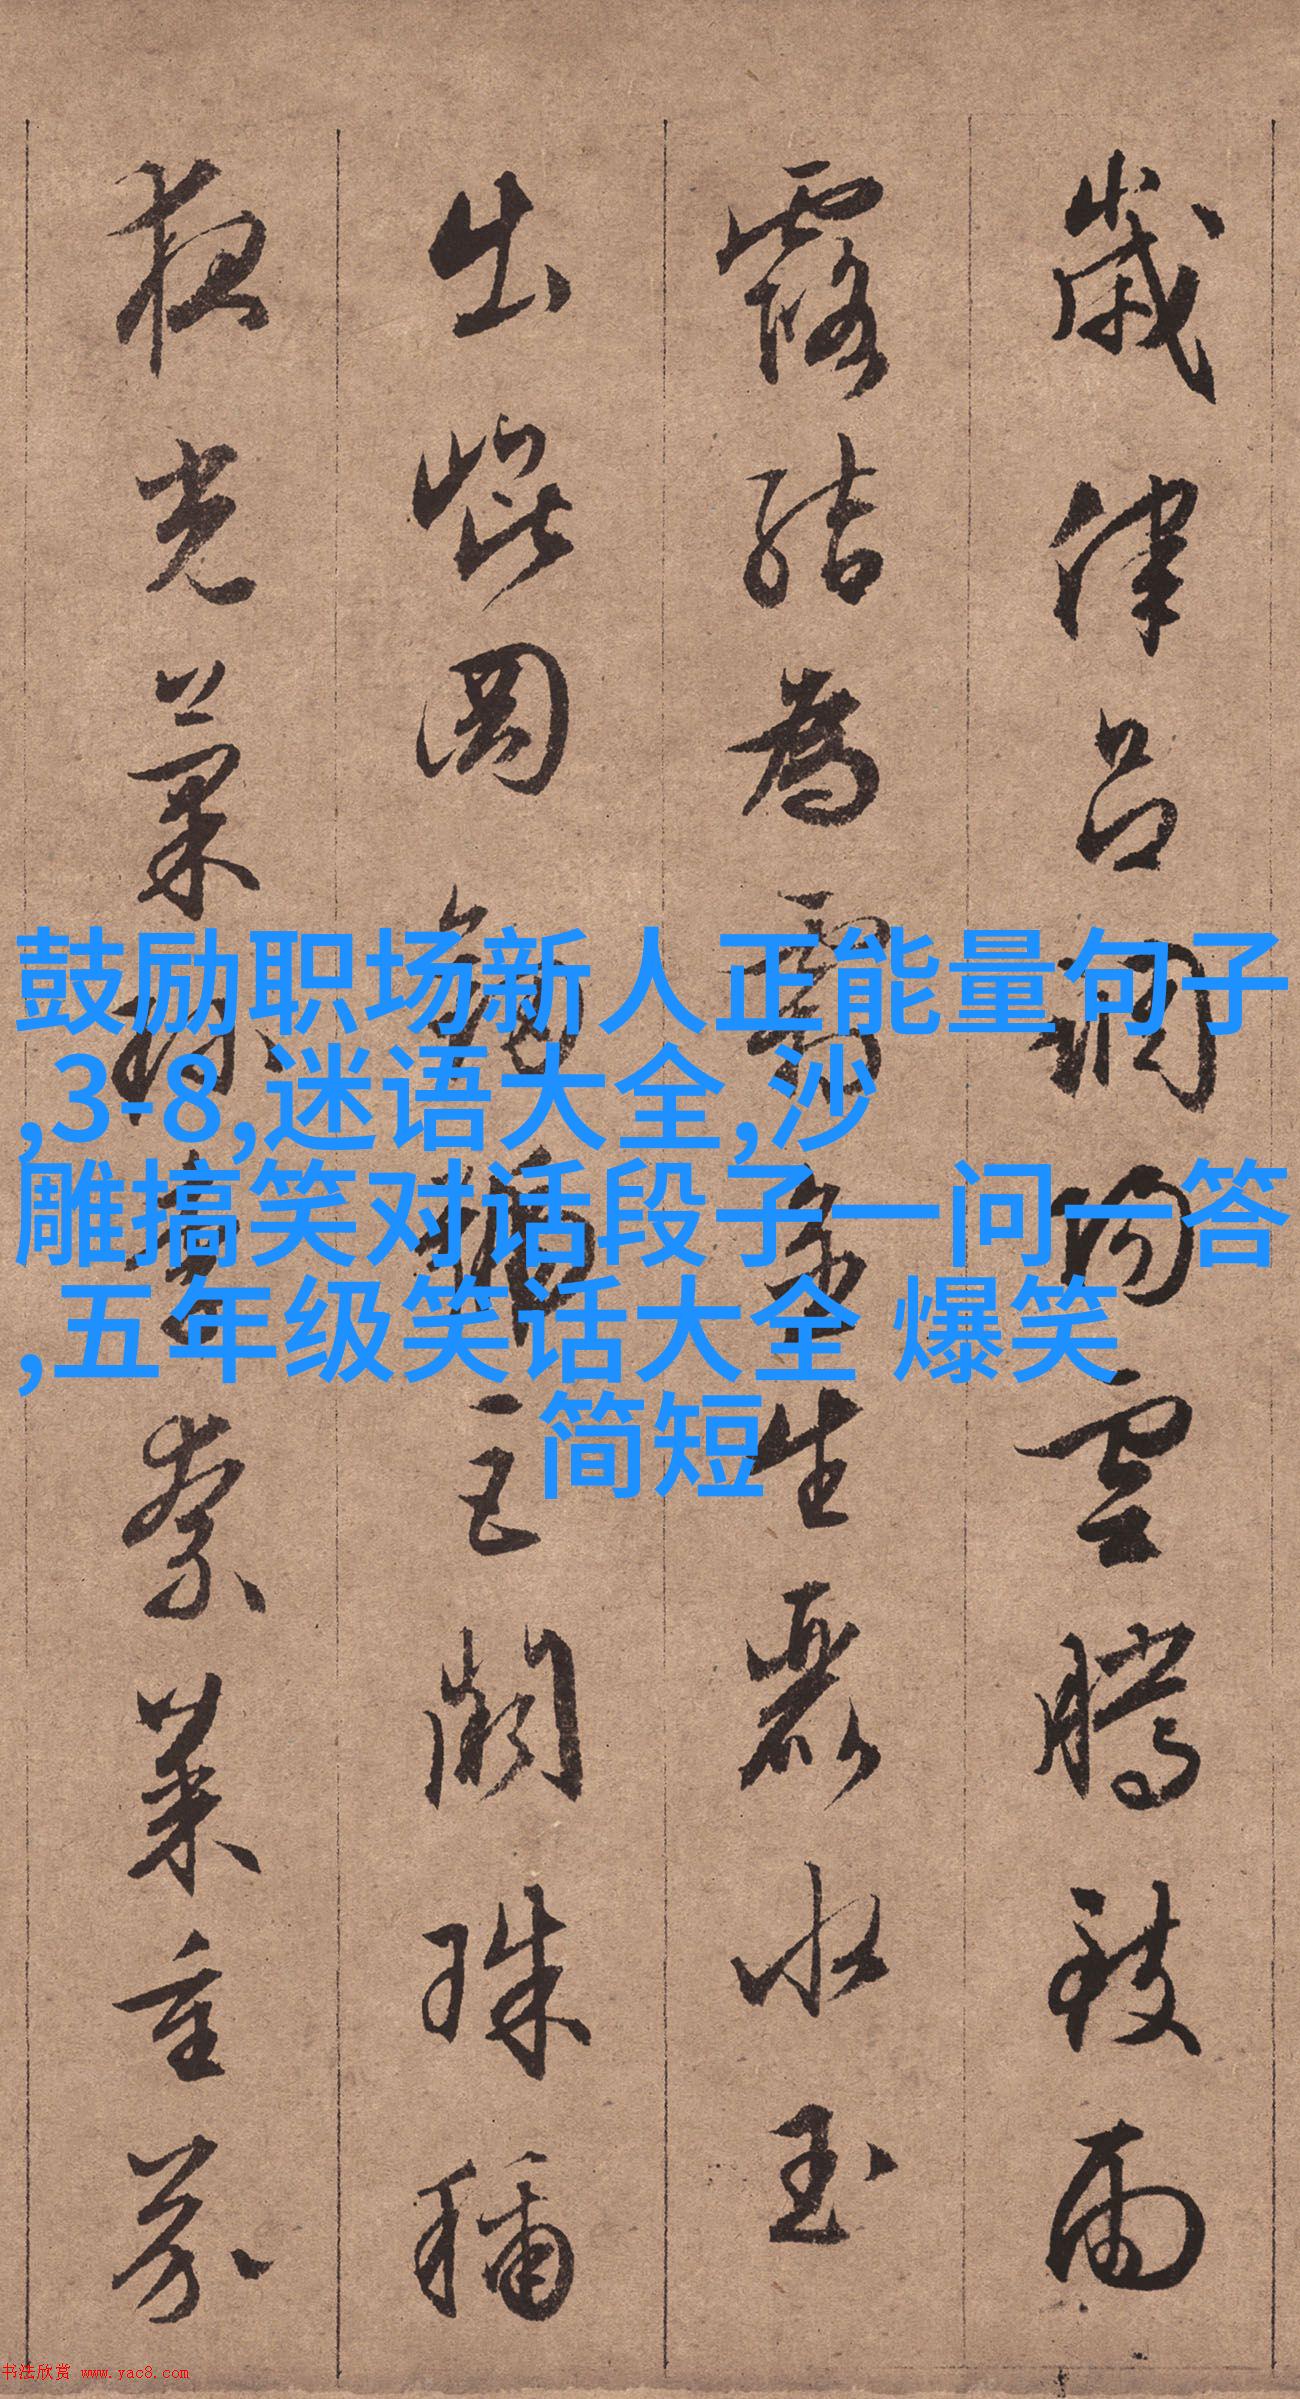 歲律呂調陽雲騰致雨
露結為霜金生麗水玉
出崐岡劍號巨闕珠稱
夜光菓珍李柰菜重芥
鼓励职场新人正能量句子
,3-8,迷语大全,沙
雕搞笑对话段子一问一答
,五年级笑话大全 爆笑
简短
书法欣赏 www.yac8.com